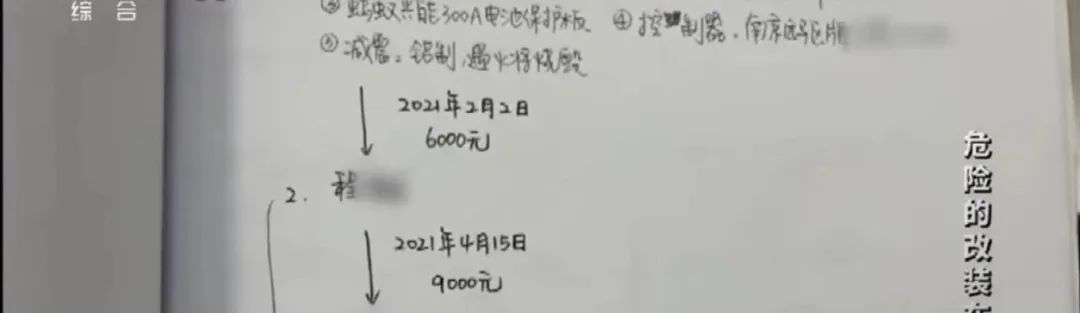 综合
③ 蚂蚁共能300A电池保护板 ④ 控制器,南京远驱版
⑤ 减震:铝制,遇火将烧毁
2021年2月2日
6000元
2. 程
2021年4月15日
9000元
危险的改装